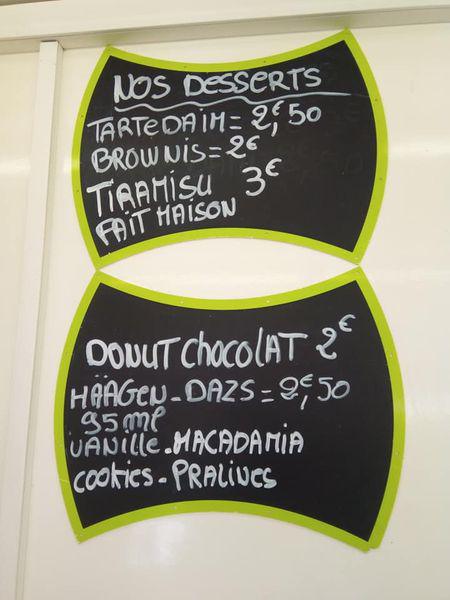 NOS DESSERTS
TARTE DAIM = 2€,50
BROWNIS = 2€
TIRAMISU 3€
FAIT MAISON
DONUT chocolAT 2€
HÄÄGEN-DAZS = 2€,50
95 ml
VANIlle-MACADAMIA
cookies-PRALINES